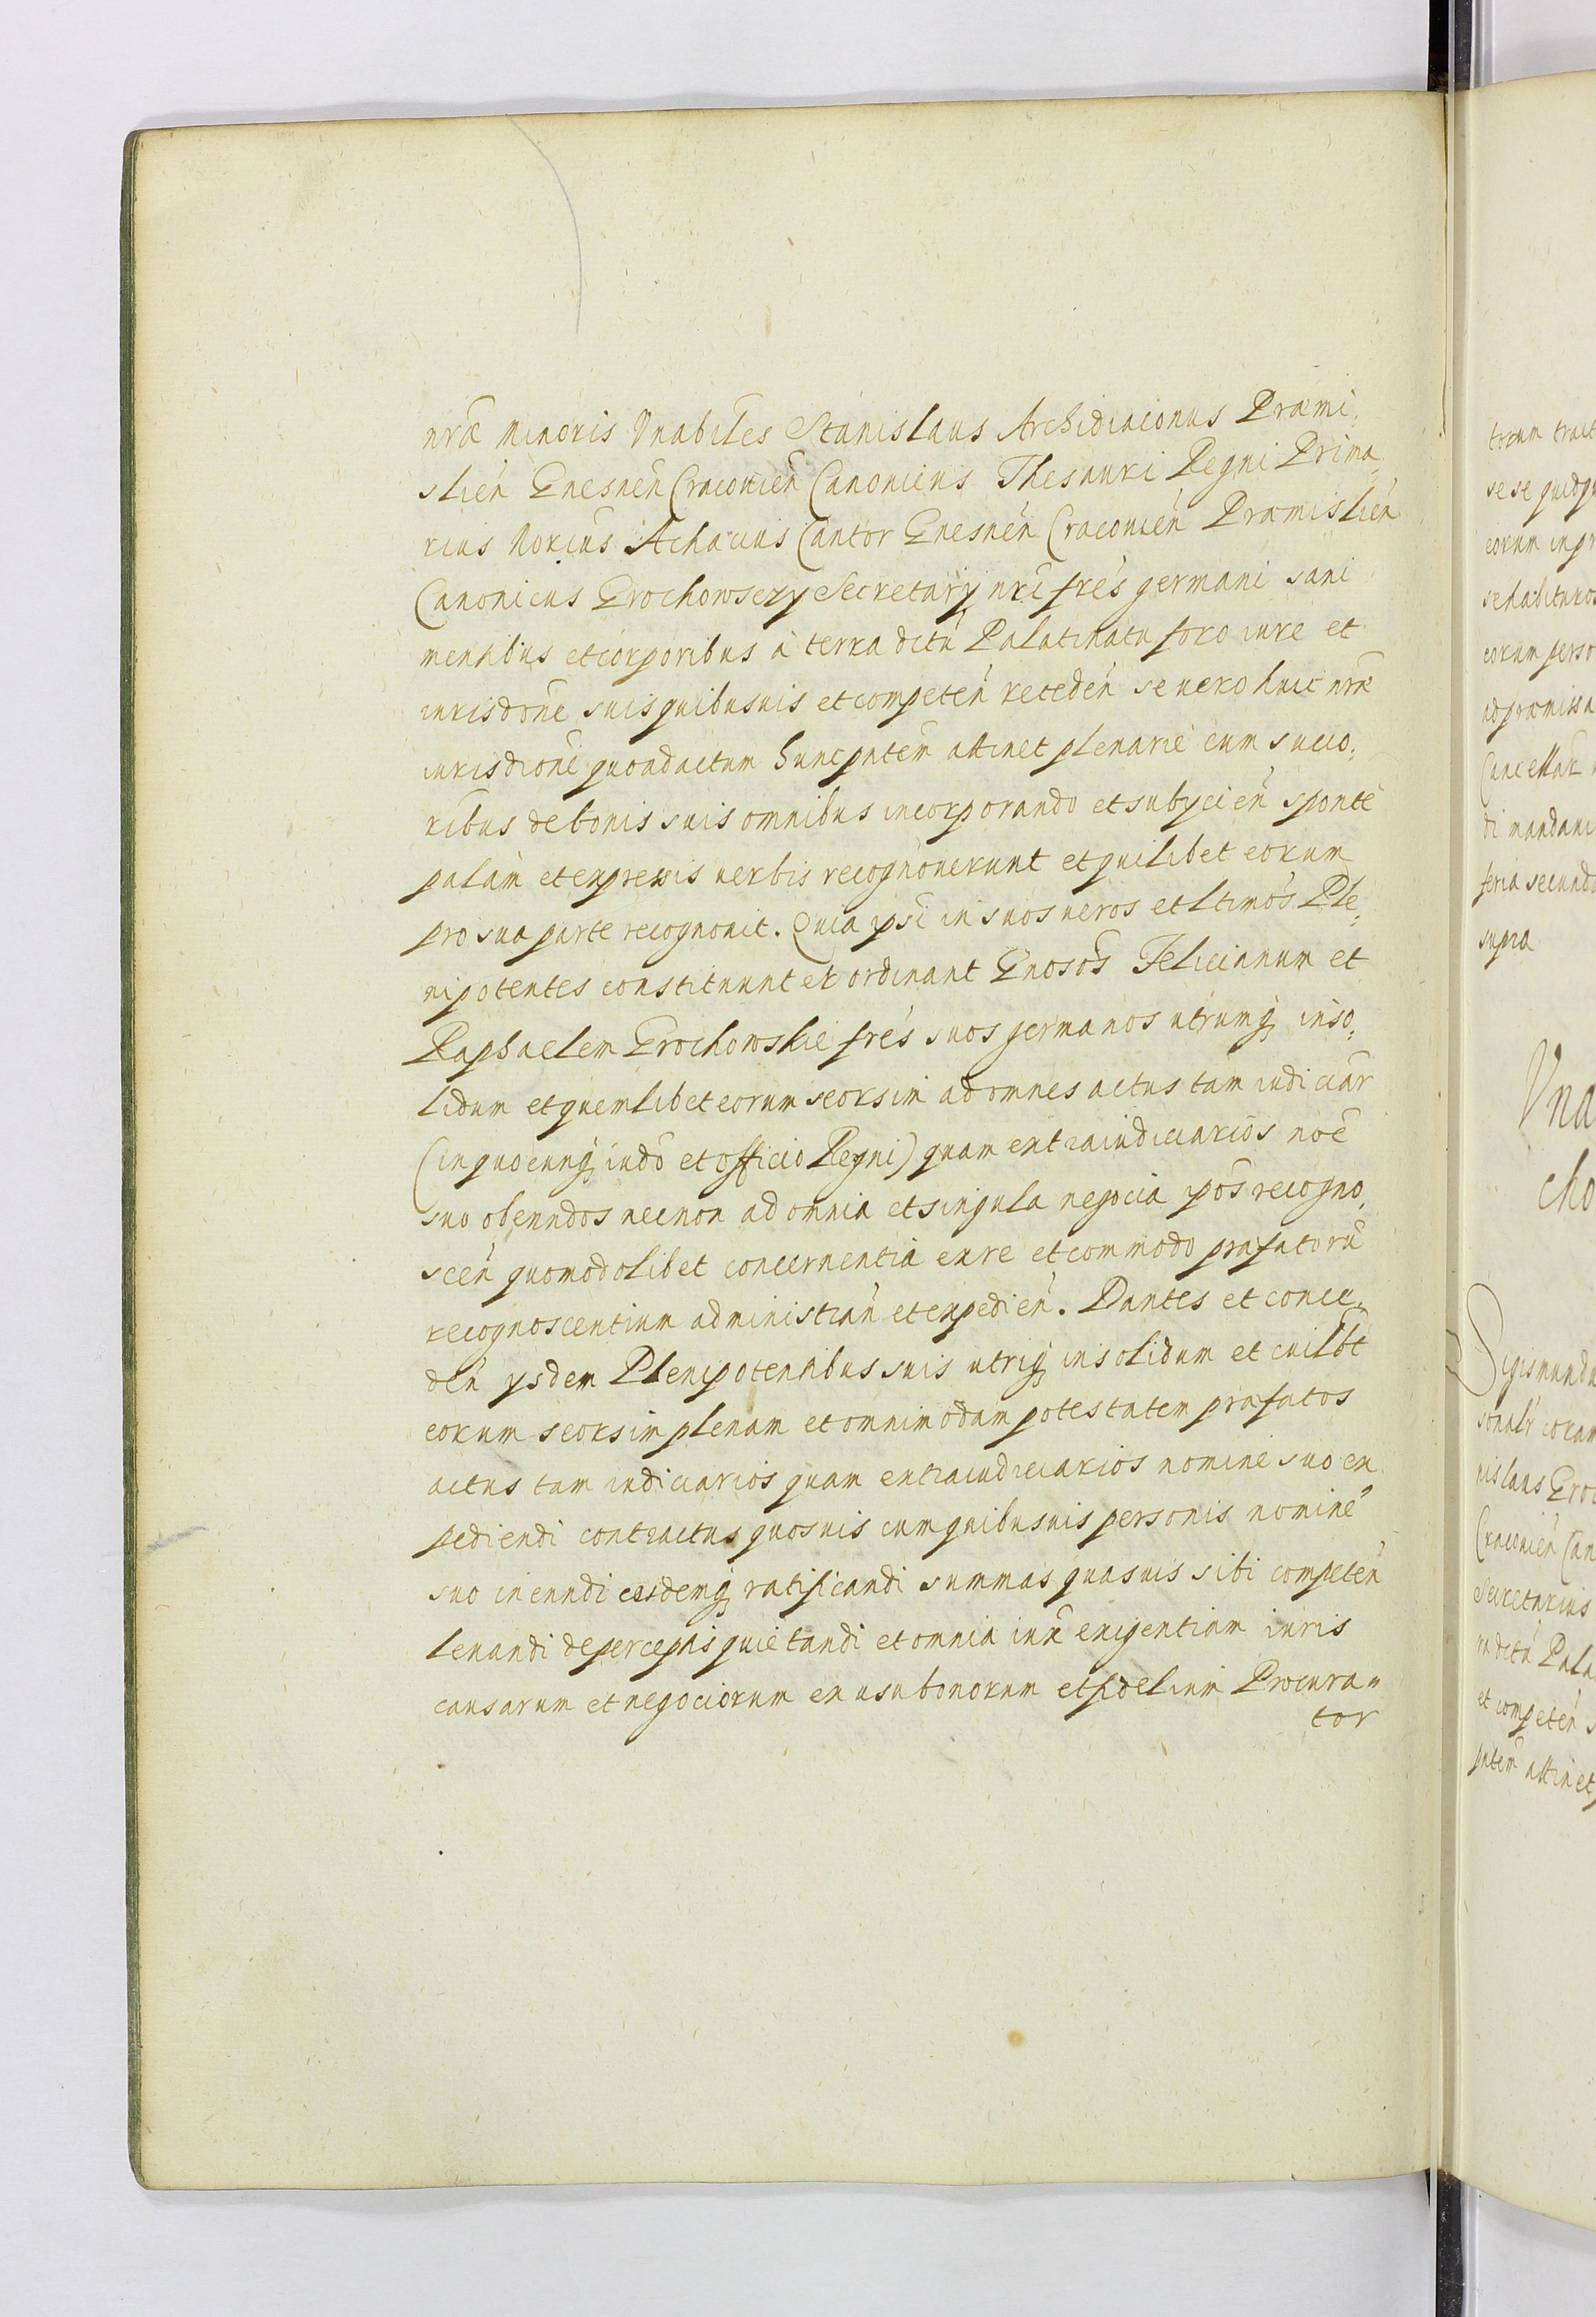 nrae Minoris Vnabiles Stanislaus Archidiaconus Praemi,
slien Gnesnen Cracouien Canonicus Thesauri Regni Prima,
rius Norius Achacius Cantor Gnesnen Cracouien Praemislien
Canonicus Grochowsczy Secretary nri fres germani sani
mentibus et corporibus à terra dictu Palatinatu foro iure et
iurisdone suis quibusuis et competen receden se uero huic nrae
iurisdioni quoad actum hunc pntem attinet plenarie cum succo,
ribus de bonis suis omnibus incorporando et subycien sponte
palam et expressis uerbis recognouerunt et quilibet eorum
pro sua parte recognouit. Quia ipsi in suos ueros et ltimos Ple,
nipotentes constituunt et ordinant Gnosos Felicianum et
Raphaelem Grochowskie fres suos germanos utrumq inso,
lidum et quemlibet eorum seorsim ad omnes actus tam iudiciar
(in quocunq iudo et officio Regni) quam extraiudiciarios noe
suo obeundos necnon ad omnia et singula negocia ipos recogno,
scen quomodolibet concernentia ex re et commodo prafatoru
recognoscentium administran et expedien. Dantes et conce,
den ysdem Plenipotentibus suis utriq insolidum et cuilbt
eorum seorsim plenam et omnimodam potestatem prafatos
actus tam iudiciarios quam extraiudiciarios nomine suo ex
pediendi contractus quosuis cum quibusuis personis nomine
suo ineundi eosdemq ratificandi summas quasuis sibi competen
leuandi de perceptis quietandi et omnia iux exigentiam iuris
causarum et negociorum ex usu bonorum et fidelium Procura"
tor